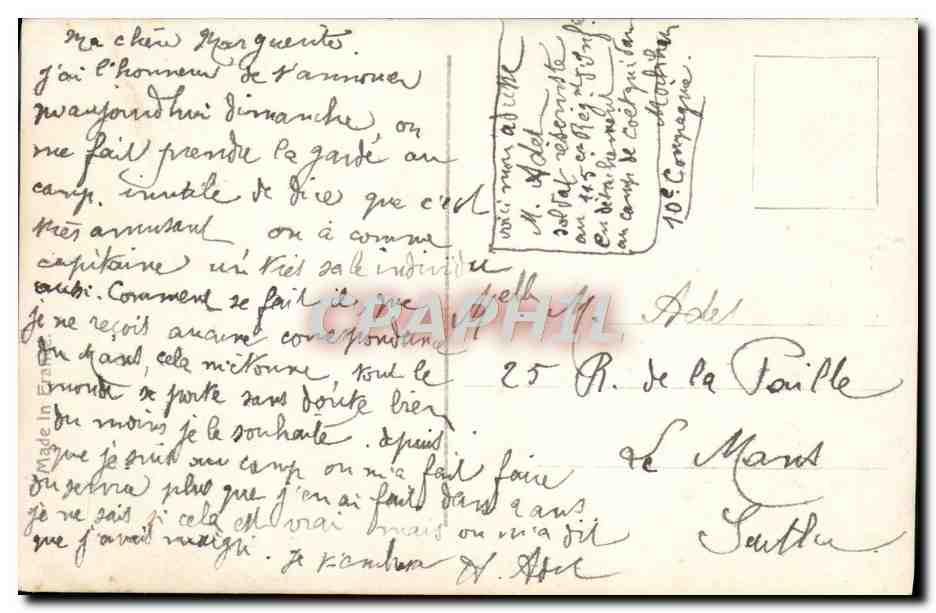 Ma chère Marguerite.
j'ai l'honneur de t'annoncer
qu'aujourd'hui dimanche, on
me fait prendre la garde au
camp, inutile de dire que c'est
très amusant on à comme
capitaine un très sale individu
aussi. Comment se fait il que
je ne reçois aucune correspondance
du Mans, cela m'étonne, tout le
monde se porte sans doute bien
du moins je le souhaite. depuis
que je suis au camp on m'a fait faire
du service plus que j'en ai fait dans 2 ans
je ne sais si cela est vrai mais on m'a dit
que j'avais maigri. Je t'embrasse A. Adet
voici mon adresse
M. Adet
soldat réserviste
au 115e Reg d'Inf
en détachement
au camp de Coëtquidan
Morbihan
10e Compagnie.
Melle M. Adet
25 R. de la Paille
Le Mans
Sarthe
Made in France
CPAPHIL